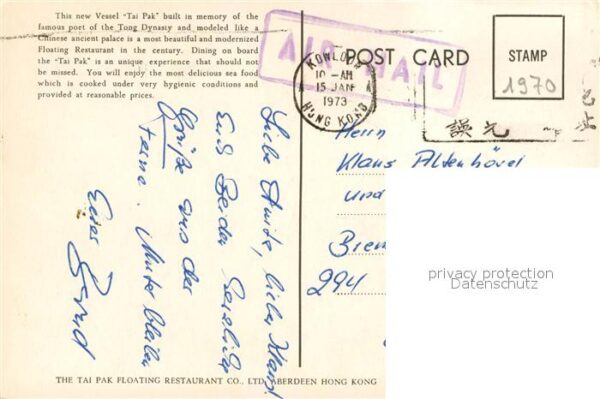 This new Vessel "Tai Pak" built in memory of the
famous poet of the Tong Dynasty and modeled like a
Chinese ancient palace is a most beautiful and modernized
Floating Restaurant in the century. Dining on board
the "Tai Pak" is an unique experience that should not
be missed. You will enjoy the most delicious sea food
which is cooked under very hygienic conditions and
provided at reasonable prices.
AIR MAIL
POST CARD
STAMP
1970
KOWLOON
10 - AM
15 JAN
1973
HONG KONG
Herrn
Klaus Altenhövel
und
294
privacy protection
Datenschutz
Liebe Anita, lieber Klaus!
Euch Beiden herzliche
Grüße aus der
Ferne. Munter bleiben
Euer
THE TAI PAK FLOATING RESTAURANT CO., LTD. ABERDEEN HONG KONG